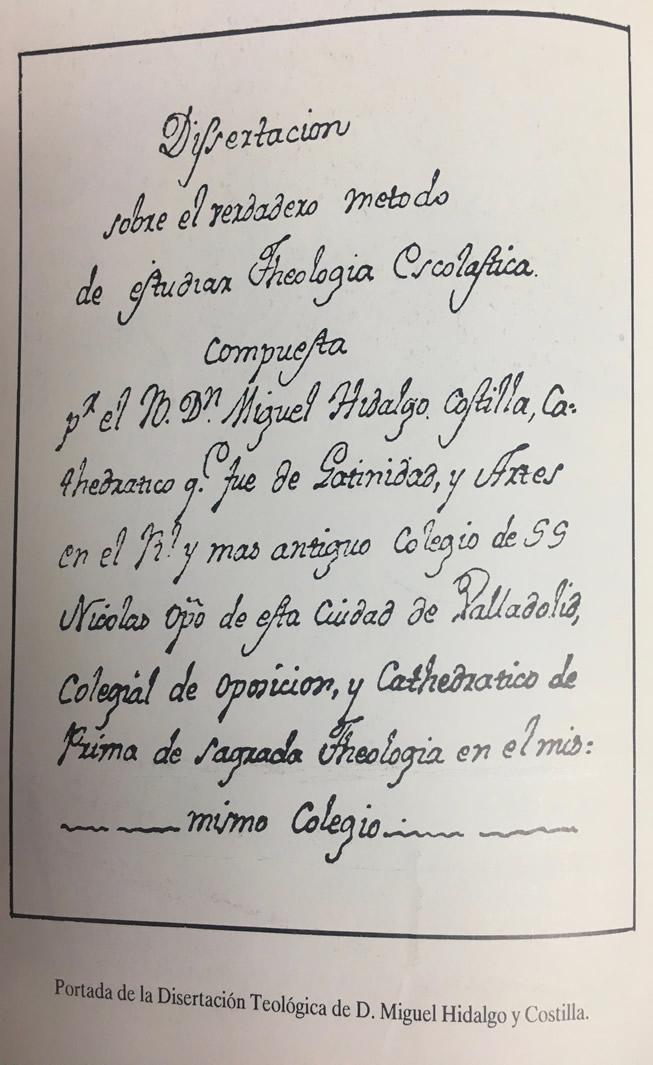 Dissertacion
sobre el verdadero metodo
de estudiar Theologia Escolastica.
Compuesta
pr el B. Dn. Miguel Hidalgo. Costilla, Ca-
thedratico q.e fue de Latinidad, y Artes
en el Rl. y mas antiguo Colegio de SS
Nicolas Opõ de esta Ciudad de Valladolid,
Colegial de oposicion, y Cathedratico de
Prima de sagrada Theologia en el mis:
mismo Colegio
Portada de la Disertación Teológica de D. Miguel Hidalgo y Costilla.